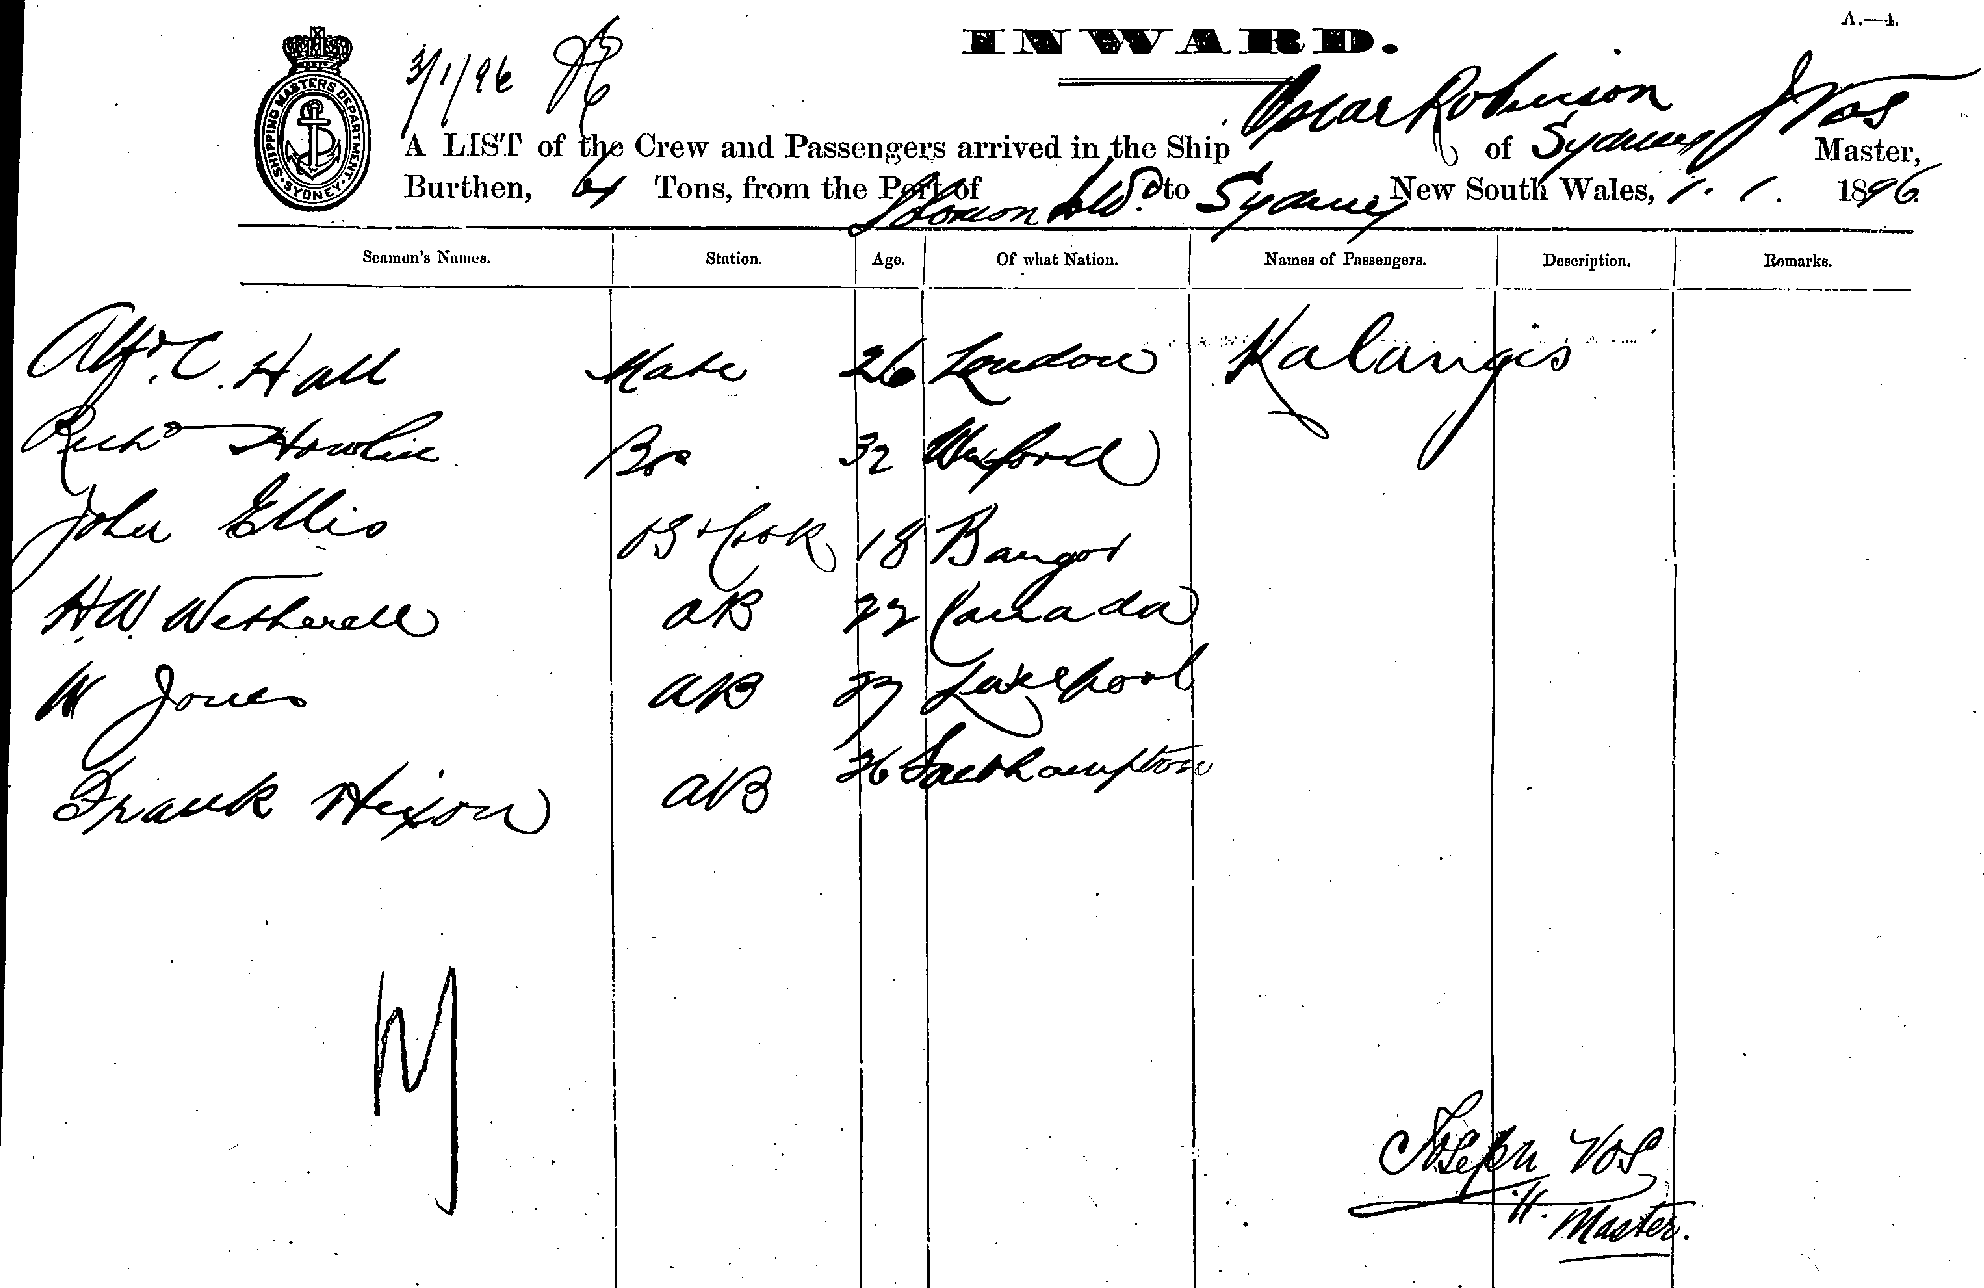 A.—4.
INWARD.
SHIPPING MASTERS DEPARTMENT. SYDNEY.
3/1/96
A LIST of the Crew and Passengers arrived in the Ship Oscar Robinson of Sydney J Vos Master,
Burthen, 64 Tons, from the Port of Solomon Isld.s to Sydney New South Wales, 1. 1. 1896
Seamen's Names. Station. Age. Of what Nation. Names of Passengers. Description. Remarks.
Alfd. C. Hall Mate 26 London Kalangis
Richd Howlin Bos 32 Wexford
John Ellis OS & Cook 18 Bangor
H.W. Wetherell AB Canada
W Jones AB Liverpool
Frank Hixon AB 36 Southampton
Joseph Vos
Master.